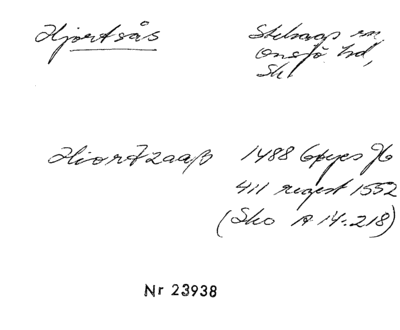 Hjortsås
Stehags sn,
Onsjö hd,
Sk
Hiortzaaß 1488
411 regest 1552
(Sko A 14:218)
Nr 23938